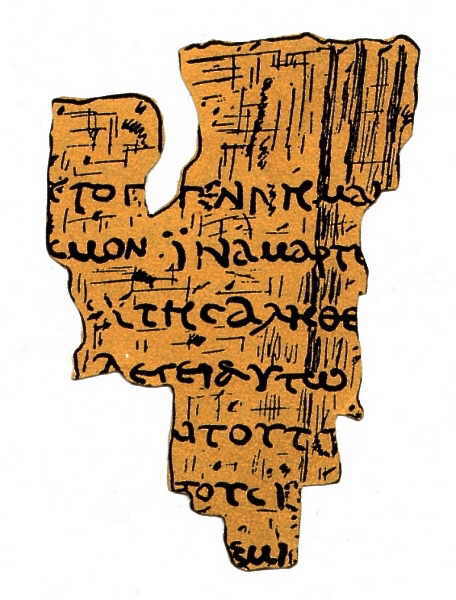 ΥΤΟ Γ ΓΕΝΝΗΜΑΙ
ϹΜΟΝ ΪΝΑ ΜΑΡΤΥ
Κ ΤΗϹ ΑΛΗΘΕ
ΛΕΓΕΙ ΑΥΤΩ
ΑΙ ΤΟΥΤΟ
ΤΟΥϹ Ι
ΕΜΙ